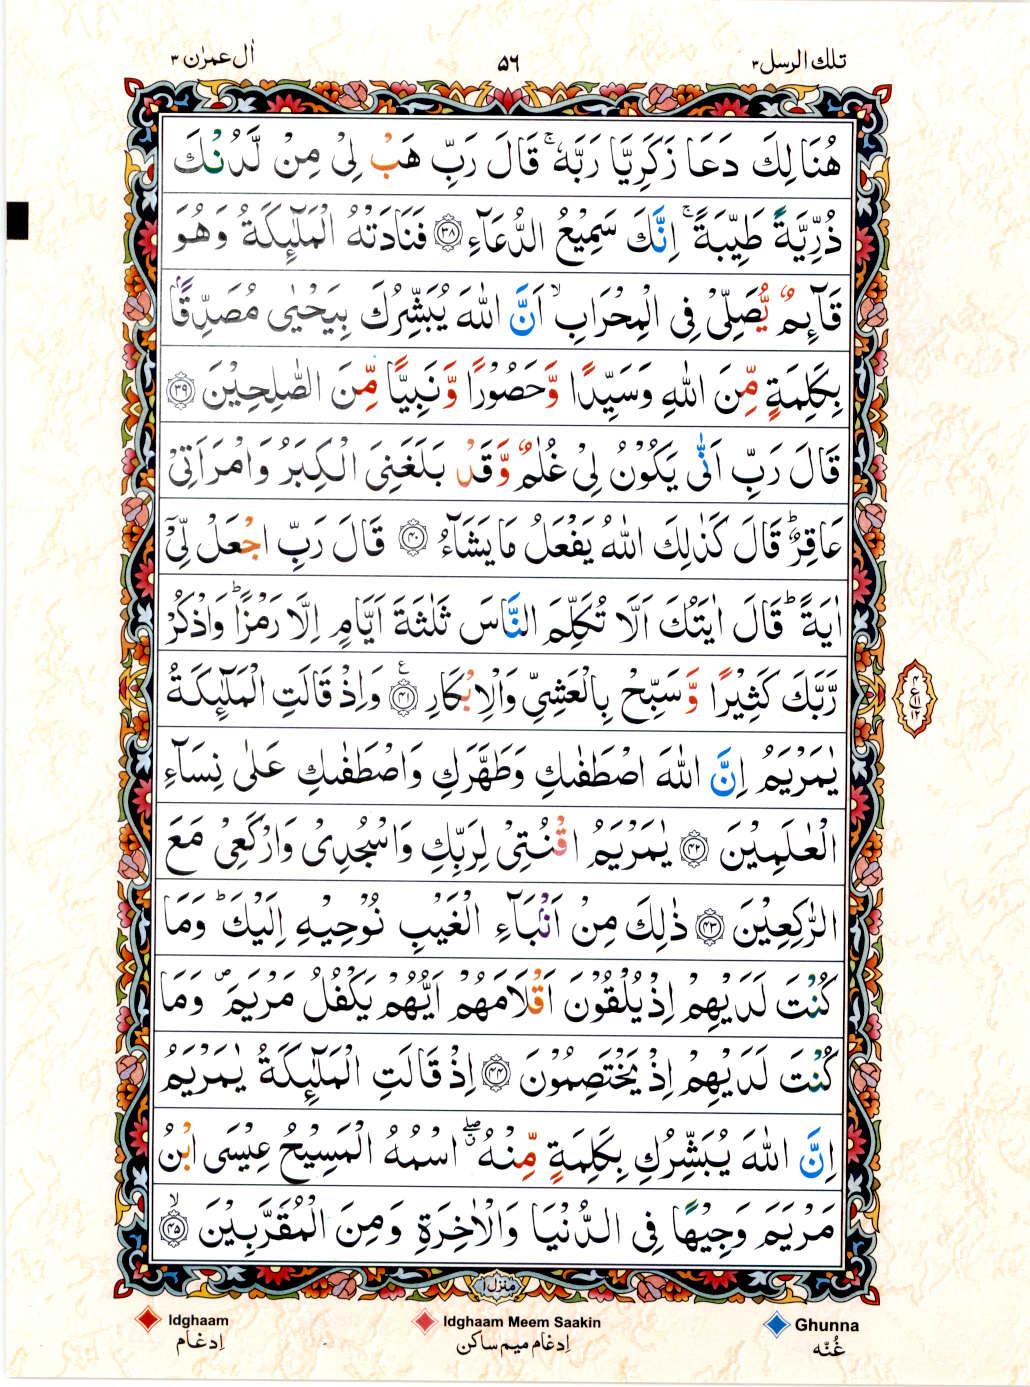 تلك الرسل ٣
٥٦
اٰل عمرٰن ٣
هُنَالِكَ دَعَا زَكَرِيَّا رَبَّهٗ ۚ قَالَ رَبِّ هَبْ لِيْ مِنْ لَّدُنْكَ
ذُرِّيَّةً طَيِّبَةً ۚ اِنَّكَ سَمِيْعُ الدُّعَآءِ ﴿٣٨﴾ فَنَادَتْهُ الْمَلٰٓئِكَةُ وَهُوَ
قَآئِمٌ يُّصَلِّيْ فِي الْمِحْرَابِ ۙ اَنَّ اللّٰهَ يُبَشِّرُكَ بِيَحْيٰى مُصَدِّقًۢا
بِكَلِمَةٍ مِّنَ اللّٰهِ وَسَيِّدًا وَّحَصُوْرًا وَّنَبِيًّا مِّنَ الصّٰلِحِيْنَ ﴿٣٩﴾
قَالَ رَبِّ اَنّٰى يَكُوْنُ لِيْ غُلٰمٌ وَّقَدْ بَلَغَنِيَ الْكِبَرُ وَامْرَاَتِيْ
عَاقِرٌ ؕ قَالَ كَذٰلِكَ اللّٰهُ يَفْعَلُ مَا يَشَآءُ ﴿٤٠﴾ قَالَ رَبِّ اجْعَلْ لِّيْٓ
اٰيَةً ؕ قَالَ اٰيَتُكَ اَلَّا تُكَلِّمَ النَّاسَ ثَلٰثَةَ اَيَّامٍ اِلَّا رَمْزًا ؕ وَاذْكُرْ
رَّبَّكَ كَثِيْرًا وَّسَبِّحْ بِالْعَشِيِّ وَالْاِبْكَارِ ﴿٤١﴾ ع وَاِذْ قَالَتِ الْمَلٰٓئِكَةُ
٤
ع ١١
١٢
يٰمَرْيَمُ اِنَّ اللّٰهَ اصْطَفٰىكِ وَطَهَّرَكِ وَاصْطَفٰىكِ عَلٰى نِسَآءِ
الْعٰلَمِيْنَ ﴿٤٢﴾ يٰمَرْيَمُ اقْنُتِيْ لِرَبِّكِ وَاسْجُدِيْ وَارْكَعِيْ مَعَ
الرّٰكِعِيْنَ ﴿٤٣﴾ ذٰلِكَ مِنْ اَنْۢبَآءِ الْغَيْبِ نُوْحِيْهِ اِلَيْكَ ؕ وَمَا
كُنْتَ لَدَيْهِمْ اِذْ يُلْقُوْنَ اَقْلَامَهُمْ اَيُّهُمْ يَكْفُلُ مَرْيَمَ ۪ وَمَا
كُنْتَ لَدَيْهِمْ اِذْ يَخْتَصِمُوْنَ ﴿٤٤﴾ اِذْ قَالَتِ الْمَلٰٓئِكَةُ يٰمَرْيَمُ
اِنَّ اللّٰهَ يُبَشِّرُكِ بِكَلِمَةٍ مِّنْهُ ۖ اسْمُهُ الْمَسِيْحُ عِيْسَى ابْنُ
مَرْيَمَ وَجِيْهًا فِي الدُّنْيَا وَالْاٰخِرَةِ وَمِنَ الْمُقَرَّبِيْنَ ﴿٤٥﴾ ۙ
منزل ١
Idghaam
اِدغام
Idghaam Meem Saakin
اِدغام میم ساکن
Ghunna
غُنّه